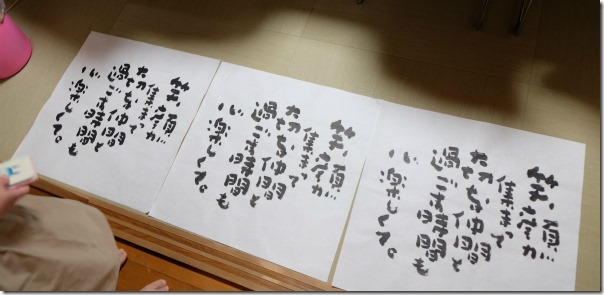 笑顔が
集まって
大切な仲間と
過ごす時間も
心楽しくて。
笑顔が
集まって
大切な仲間と
過ごす時間も
心楽しくて。
笑顔が
集まって
大切な仲間と
過ごす時間も
心楽しくて。